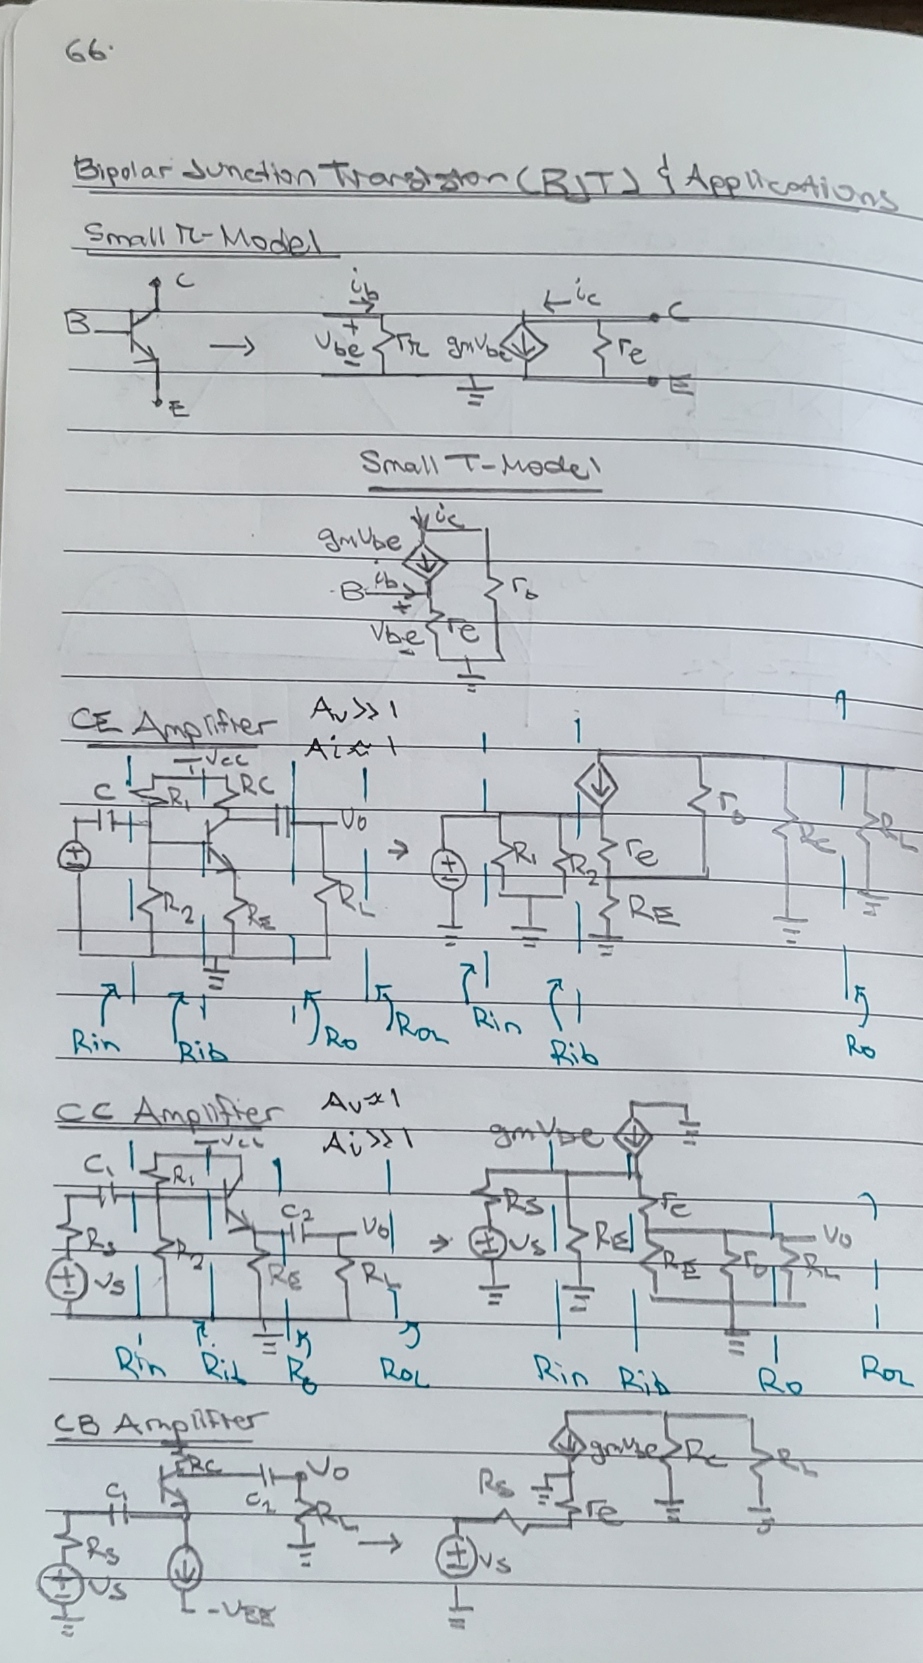 66.
Bipolar Junction Transistor (BJT) & Applications
Small π-Model
C
B
E
ib
+
Vbe
-
rπ
gmVbe
ic
re
C
E
Small T-Model
ic
gmVbe
B
ib
+
Vbe
-
re
ro
CE Amplifier
Av>>1
Ai≈1
Vcc
C
R1
RC
Vo
R2
RE
RL
R1
R2
re
ro
RE
Rc
RL
Rin
Rib
Ro
RoL
Rin
Rib
Ro
CC Amplifier
Av≈1
Ai>>1
Vcc
C1
R1
Rs
Vs
R2
C2
RE
Vo
RL
gmVbe
Rs
Vs
RE
re
RE
ro
RL
Vo
Rin
Rib
Ro
RoL
Rin
Rib
Ro
RoL
CB Amplifier
RC
C1
C2
Vo
RL
Rs
Vs
-VEE
gmVbe
Rc
RL
Rs
re
Vs